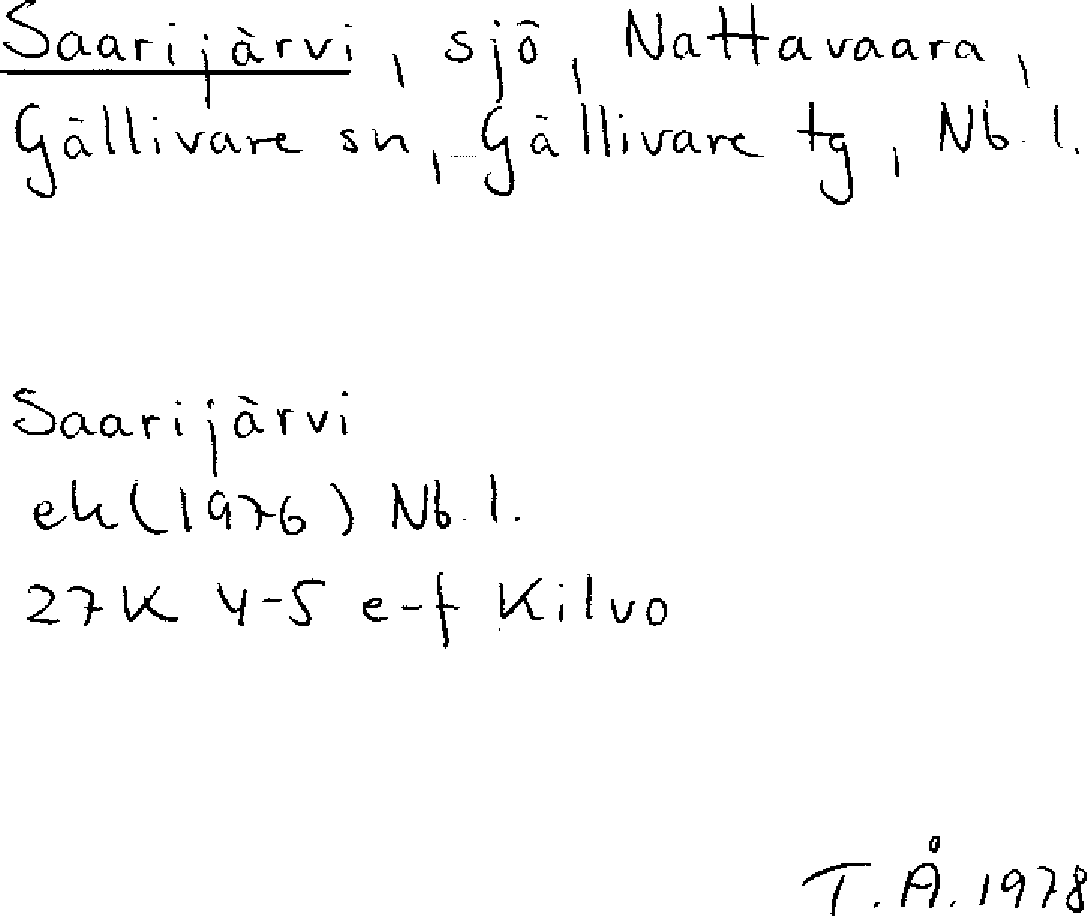 Saarijärvi, sjö, Nattavaara,
Gällivare sn, Gällivare tg, Nb. l.
Saarijärvi
ek (1976) Nb. l.
27K 4-5 e-f Kilvo
T. Å. 1978